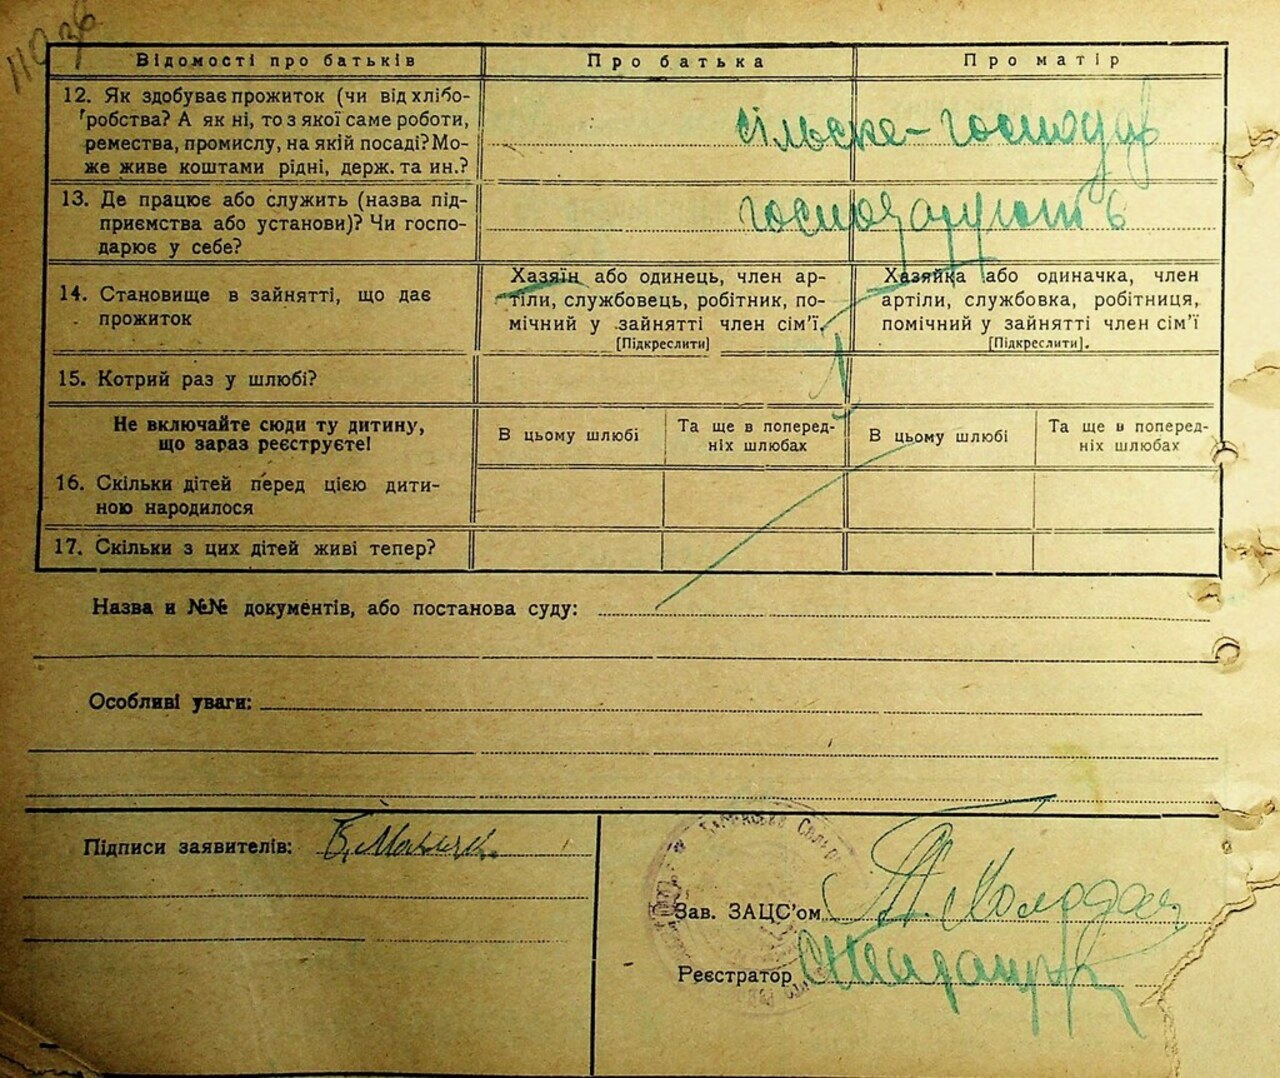 11036
Відомості про батьків
Про батька
Про матір
12. Як здобуває прожиток (чи від хлібо-
робства? А як ні, то з якої саме роботи,
ремества, промислу, на якій посаді? Мо-
же живе коштами рідні, держ. та ин.?
сільске-господар
13. Де працює або служить (назва під-
приємства або установи)? Чи госпо-
дарює у себе?
господарують в
14. Становище в зайнятті, що дає
прожиток
Хазяїн або одинець, член ар-
тіли, службовець, робітник, по-
мічний у зайнятті член сім'ї.
[Підкреслити]
Хазяйка або одиначка, член
артіли, службовка, робітниця,
помічний у зайнятті член сім'ї
[Підкреслити].
15. Котрий раз у шлюбі?
1
Не включайте сюди ту дитину,
що зараз реєструєте!
В цьому шлюбі
Та ще в поперед-
ніх шлюбах
В цьому шлюбі
Та ще в поперед-
ніх шлюбах
16. Скільки дітей перед цією дити-
ною народилося
17. Скільки з цих дітей живі тепер?
Назва и №№ документів, або постанова суду:
Особливі уваги:
Підписи заявителів:
Зав. ЗАЦС'ом
Реєстратор